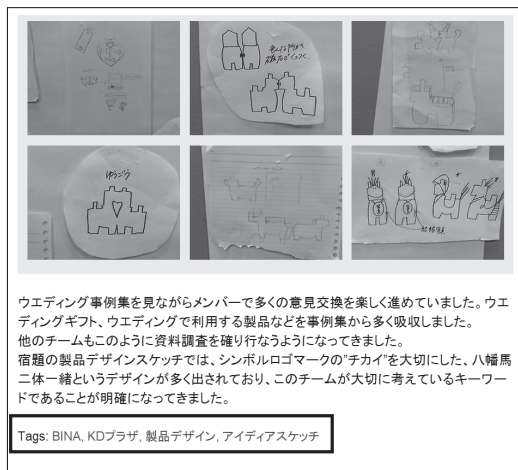 ゆうごう
ウエディング事例集を見ながらメンバーで多くの意見交換を楽しく進めていました。ウエ
ディングギフト、ウエディングで利用する製品などを事例集から多く吸収しました。
他のチームもこのように資料調査を確り行なうようになってきました。
宿題の製品デザインスケッチでは、シンボルロゴマークの”チカイ”を大切にした、八幡馬
二体一緒というデザインが多く出されており、このチームが大切に考えているキーワー
ドであることが明確になってきました。
Tags: BINA, KDプラザ, 製品デザイン, アイディアスケッチ